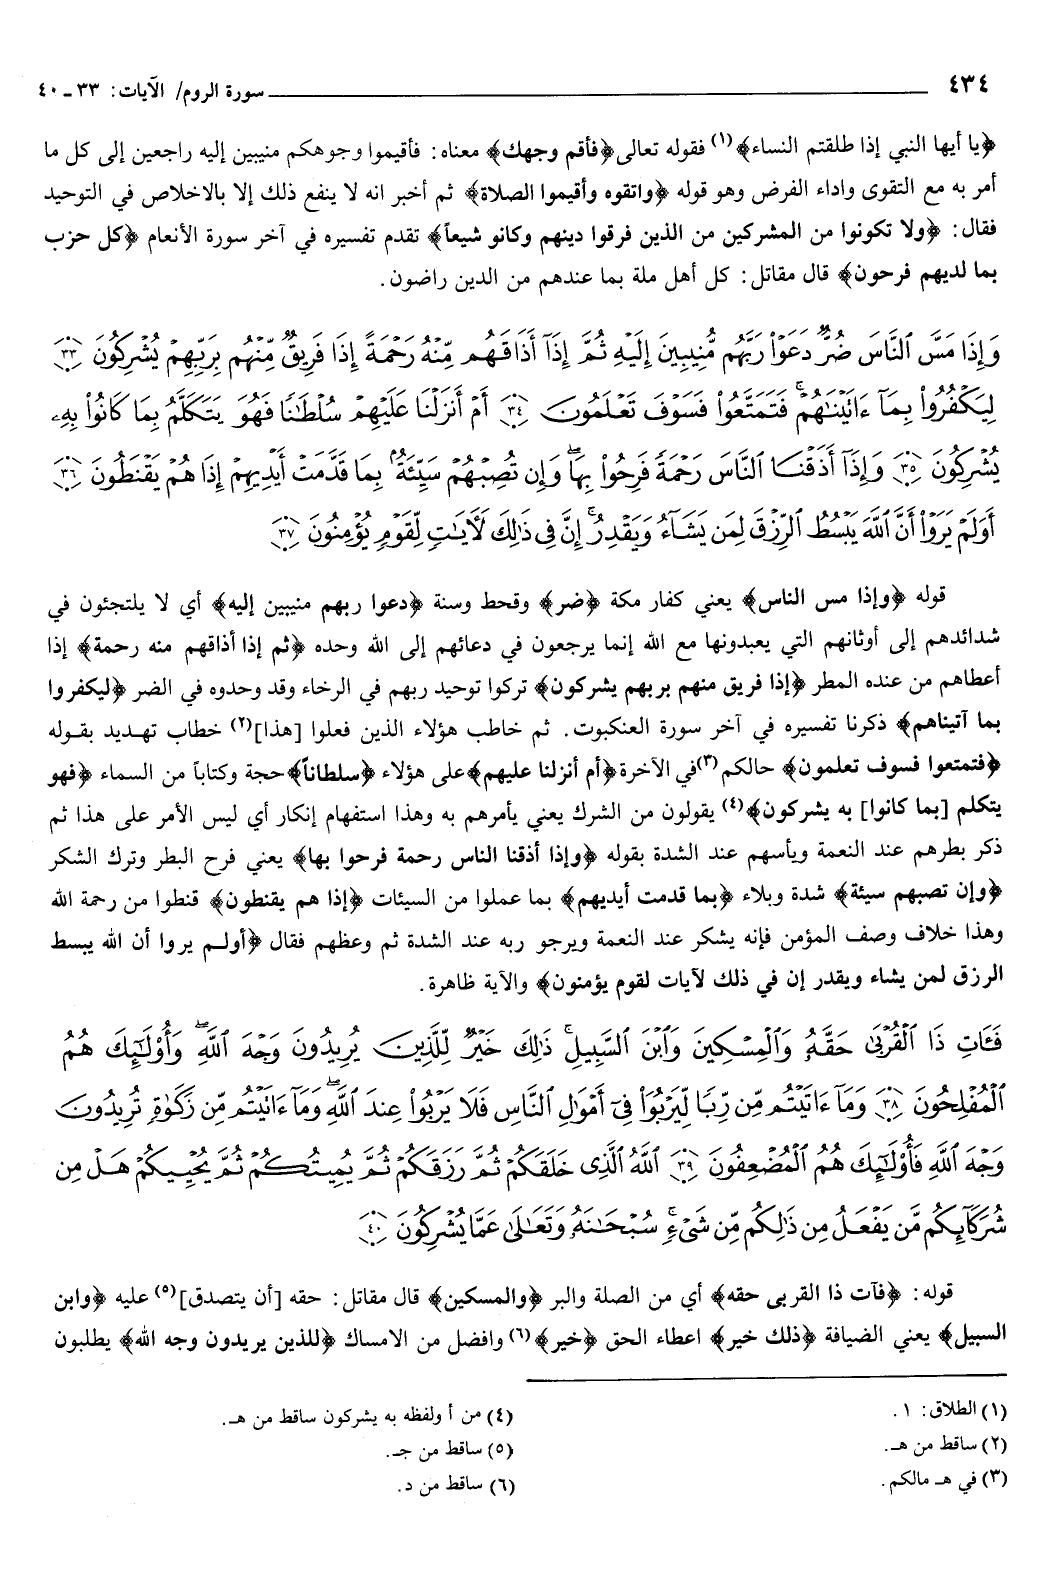 ٤٣٤ سورة الروم/ الآيات: ٣٣ ـ ٤٠
﴿يا أيها النبي إذا طلقتم النساء﴾(١) فقوله تعالى﴿فأقم وجهك﴾ معناه: فأقيموا وجوهكم منيبين إليه راجعين إلى كل ما
أمر به مع التقوى واداء الفرض وهو قوله ﴿واتقوه وأقيموا الصلاة﴾ ثم أخبر انه لا ينفع ذلك إلا بالاخلاص في التوحيد
فقال: ﴿ولا تكونوا من المشركين من الذين فرقوا دينهم وكانو شيعاً﴾ تقدم تفسيره في آخر سورة الأنعام ﴿كل حزب
بما لديهم فرحون﴾ قال مقاتل: كل أهل ملة بما عندهم من الدين راضون.
وَإِذَا مَسَّ ٱلنَّاسَ ضُرٌّ دَعَوْا۟ رَبَّهُم مُّنِيبِينَ إِلَيْهِ ثُمَّ إِذَآ أَذَاقَهُم مِّنْهُ رَحْمَةً إِذَا فَرِيقٌ مِّنْهُم بِرَبِّهِمْ يُشْرِكُونَ ٣٣
لِيَكْفُرُوا۟ بِمَآ ءَاتَيْنَٰهُمْ ۚ فَتَمَتَّعُوا۟ فَسَوْفَ تَعْلَمُونَ ٣٤ أَمْ أَنزَلْنَا عَلَيْهِمْ سُلْطَٰنًا فَهُوَ يَتَكَلَّمُ بِمَا كَانُوا۟ بِهِۦ
يُشْرِكُونَ ٣٥ وَإِذَآ أَذَقْنَا ٱلنَّاسَ رَحْمَةً فَرِحُوا۟ بِهَا ۖ وَإِن تُصِبْهُمْ سَيِّئَةٌۢ بِمَا قَدَّمَتْ أَيْدِيهِمْ إِذَا هُمْ يَقْنَطُونَ ٣٦
أَوَلَمْ يَرَوْا۟ أَنَّ ٱللَّهَ يَبْسُطُ ٱلرِّزْقَ لِمَن يَشَآءُ وَيَقْدِرُ ۚ إِنَّ فِى ذَٰلِكَ لَـَٔايَٰتٍ لِّقَوْمٍ يُؤْمِنُونَ ٣٧
قوله ﴿وإذا مس الناس﴾ يعني كفار مكة ﴿ضر﴾ وقحط وسنة ﴿دعوا ربهم منيبين إليه﴾ أي لا يلتجئون في
شدائدهم إلى أوثانهم التي يعبدونها مع الله إنما يرجعون في دعائهم إلى الله وحده ﴿ثم إذا أذاقهم منه رحمة﴾ إذا
أعطاهم من عنده المطر ﴿إذا فريق منهم بربهم يشركون﴾ تركوا توحيد ربهم في الرخاء وقد وحدوه في الضر ﴿ليكفروا
بما آتيناهم﴾ ذكرنا تفسيره في آخر سورة العنكبوت. ثم خاطب هؤلاء الذين فعلوا [هذا](٢) خطاب تهديد بقوله
﴿فتمتعوا فسوف تعلمون﴾ حالكم(٣)في الآخرة﴿أم أنزلنا عليهم﴾على هؤلاء ﴿سلطاناً﴾حجة وكتاباً من السماء ﴿فهو
يتكلم [بما كانوا] به يشركون﴾(٤) يقولون من الشرك يعني يأمرهم به وهذا استفهام إنكار أي ليس الأمر على هذا ثم
ذكر بطرهم عند النعمة ويأسهم عند الشدة بقوله ﴿وإذا أذقنا الناس رحمة فرحوا بها﴾ يعني فرح البطر وترك الشكر
﴿وإن تصبهم سيئة﴾ شدة وبلاء ﴿بما قدمت أيديهم﴾ بما عملوا من السيئات ﴿إذا هم يقنطون﴾ قنطوا من رحمة الله
وهذا خلاف وصف المؤمن فإنه يشكر عند النعمة ويرجو ربه عند الشدة ثم وعظهم فقال ﴿أولم يروا أن الله يبسط
الرزق لمن يشاء ويقدر إن في ذلك لآيات لقوم يؤمنون﴾ والآية ظاهرة.
فَـَٔاتِ ذَا ٱلْقُرْبَىٰ حَقَّهُۥ وَٱلْمِسْكِينَ وَٱبْنَ ٱلسَّبِيلِ ۚ ذَٰلِكَ خَيْرٌ لِّلَّذِينَ يُرِيدُونَ وَجْهَ ٱللَّهِ ۖ وَأُو۟لَٰٓئِكَ هُمُ
ٱلْمُفْلِحُونَ ٣٨ وَمَآ ءَاتَيْتُم مِّن رِّبًا لِّيَرْبُوَا۟ فِىٓ أَمْوَٰلِ ٱلنَّاسِ فَلَا يَرْبُوا۟ عِندَ ٱللَّهِ ۖ وَمَآ ءَاتَيْتُم مِّن زَكَوٰةٍ تُرِيدُونَ
وَجْهَ ٱللَّهِ فَأُو۟لَٰٓئِكَ هُمُ ٱلْمُضْعِفُونَ ٣٩ ٱللَّهُ ٱلَّذِى خَلَقَكُمْ ثُمَّ رَزَقَكُمْ ثُمَّ يُمِيتُكُمْ ثُمَّ يُحْيِيكُمْ هَلْ مِن
شُرَكَآئِكُم مَّن يَفْعَلُ مِن ذَٰلِكُم مِّن شَىْءٍ ۚ سُبْحَٰنَهُۥ وَتَعَٰلَىٰ عَمَّا يُشْرِكُونَ ٤٠
قوله: ﴿فآت ذا القربى حقه﴾ أي من الصلة والبر ﴿والمسكين﴾ قال مقاتل: حقه [أن يتصدق](٥) عليه ﴿وابن
السبيل﴾ يعني الضيافة ﴿ذلك خير﴾ اعطاء الحق ﴿خير﴾(٦) وافضل من الامساك ﴿للذين يريدون وجه الله﴾ يطلبون
(١) الطلاق: ١.
(٢) ساقط من هـ.
(٣) في هـ مالكم.
(٤) من أ ولفظه به يشركون ساقط من هـ.
(٥) ساقط من جـ.
(٦) ساقط من د.